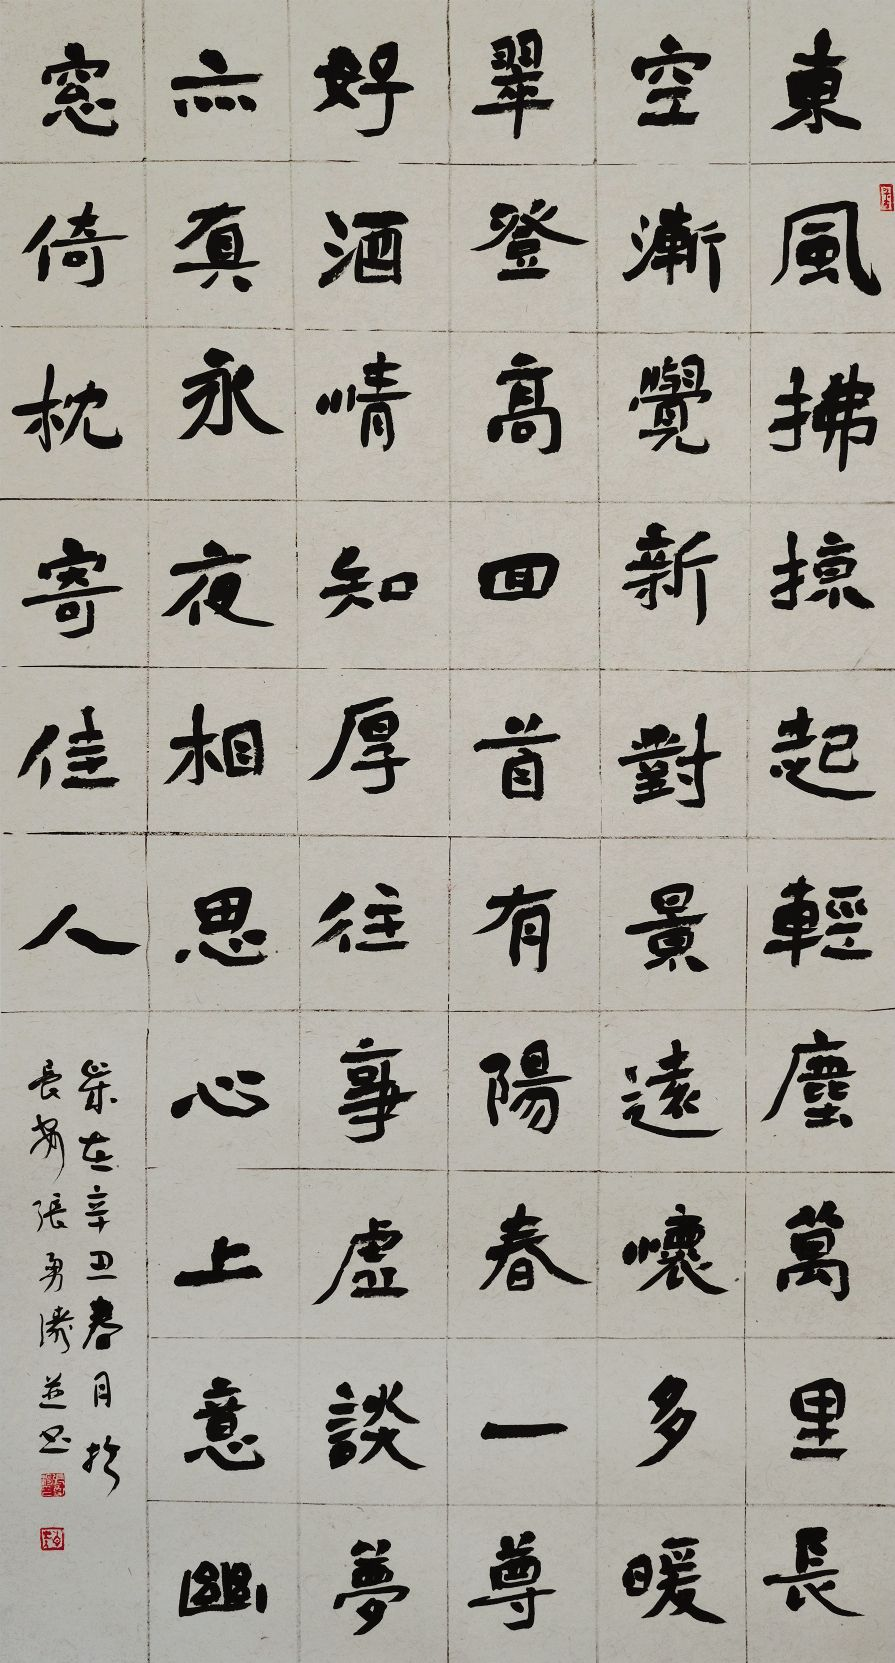 東風拂掠起輕塵萬里長
空漸覺新對景遠懷多暖
翠登高回首有陽春一尊
好酒情知厚往事虛談夢
亦真永夜相思心上意幽
窓倚枕寄佳人
歲在辛丑春月於
長安張勇濤並書